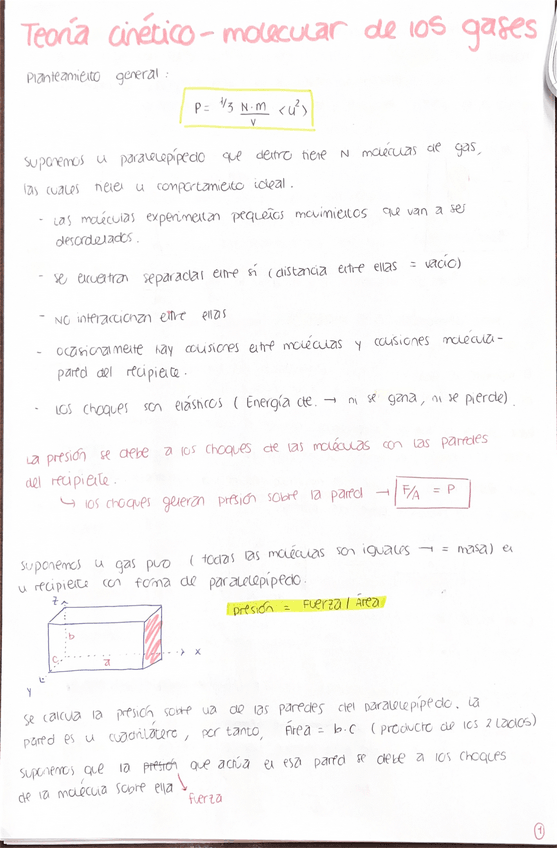 Teoría cinético-molecular de los gases
Planteamiento general:
P = 1/3 N·m/V <u²>
Suponemos u paralelepípedo que dentro tiene N moléculas de gas,
las cuales tienen u comportamiento ideal.
- Las moléculas experimentan pequeños movimientos que van a ser
desordenados.
- se encuentran separadas entre sí (distancia entre ellas = vacío)
- NO interaccionan entre ellas
- ocasionalmente hay colisiones entre moléculas y colisiones molécula-
pared del recipiente.
- Los choques son elásticos (Energía cte. → ni se gana, ni se pierde).
La presión se debe a los choques de las moléculas con las paredes
del recipiente.
↳ los choques generan presión sobre la pared → F/A = P
Suponemos u gas puro (todas las moléculas son iguales → = masa) en
u recipiente con forma de paralelepípedo.
presión = Fuerza / Área
z
b
c
a
x
y
Se calcula la presión sobre una de las paredes del paralelepípedo. La
pared es u cuadrilátero, por tanto, Área = b·c (producto de los 2 lados)
Suponemos que la presión que actúa en esa pared se debe a los choques
de la molécula sobre ella
fuerza
1